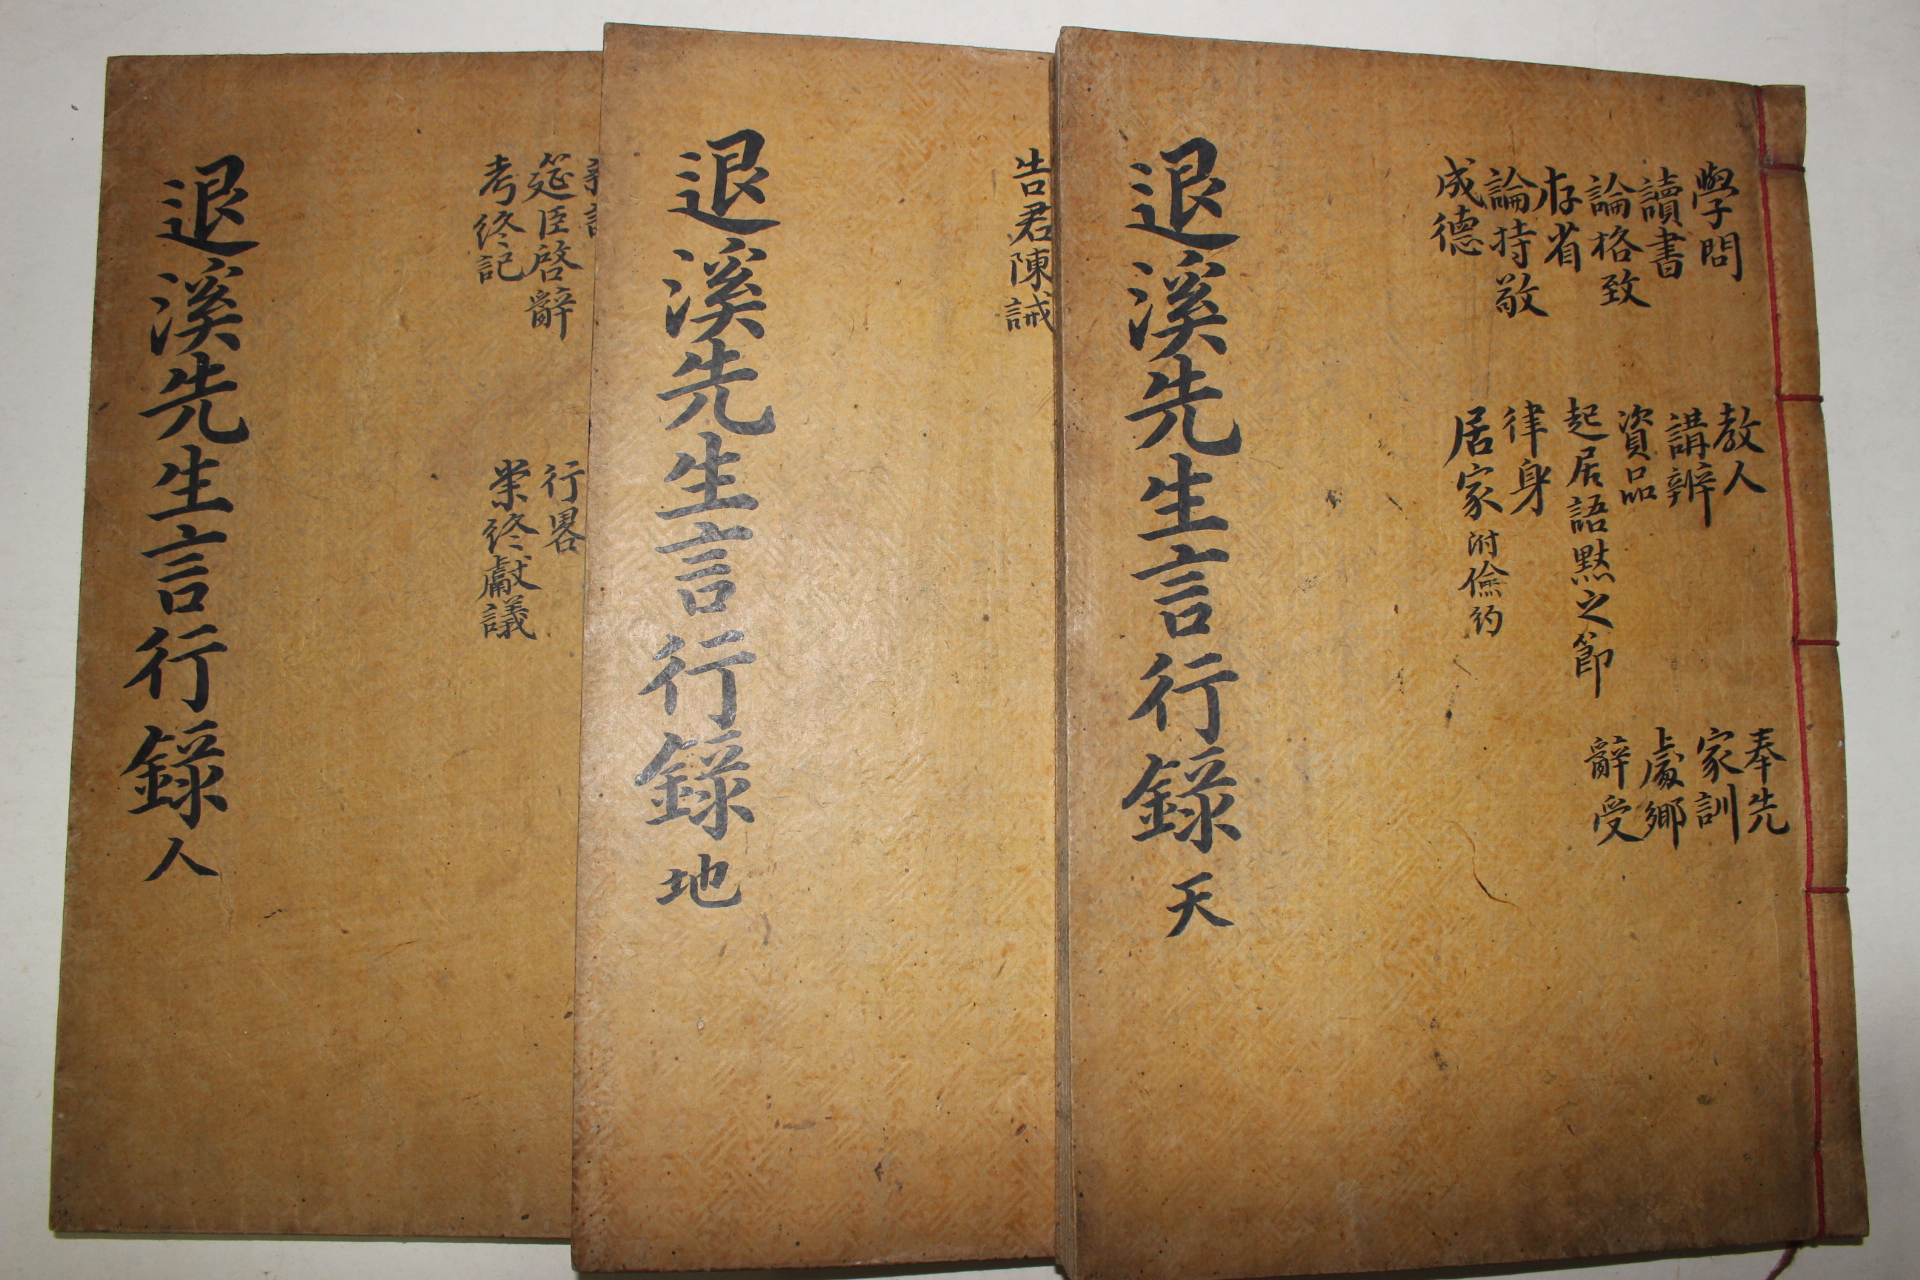 學問
讀書
論格致
存省
論持敬
成德
教人
講辨
資品
起居語默之節
律身
居家 附儉約
奉先
家訓
處鄉
辭受
退溪先生言行録 天
告君陳誡
退溪先生言行録 地
筵臣啓辭
考終記
行畧
崇終獻議
退溪先生言行録 人